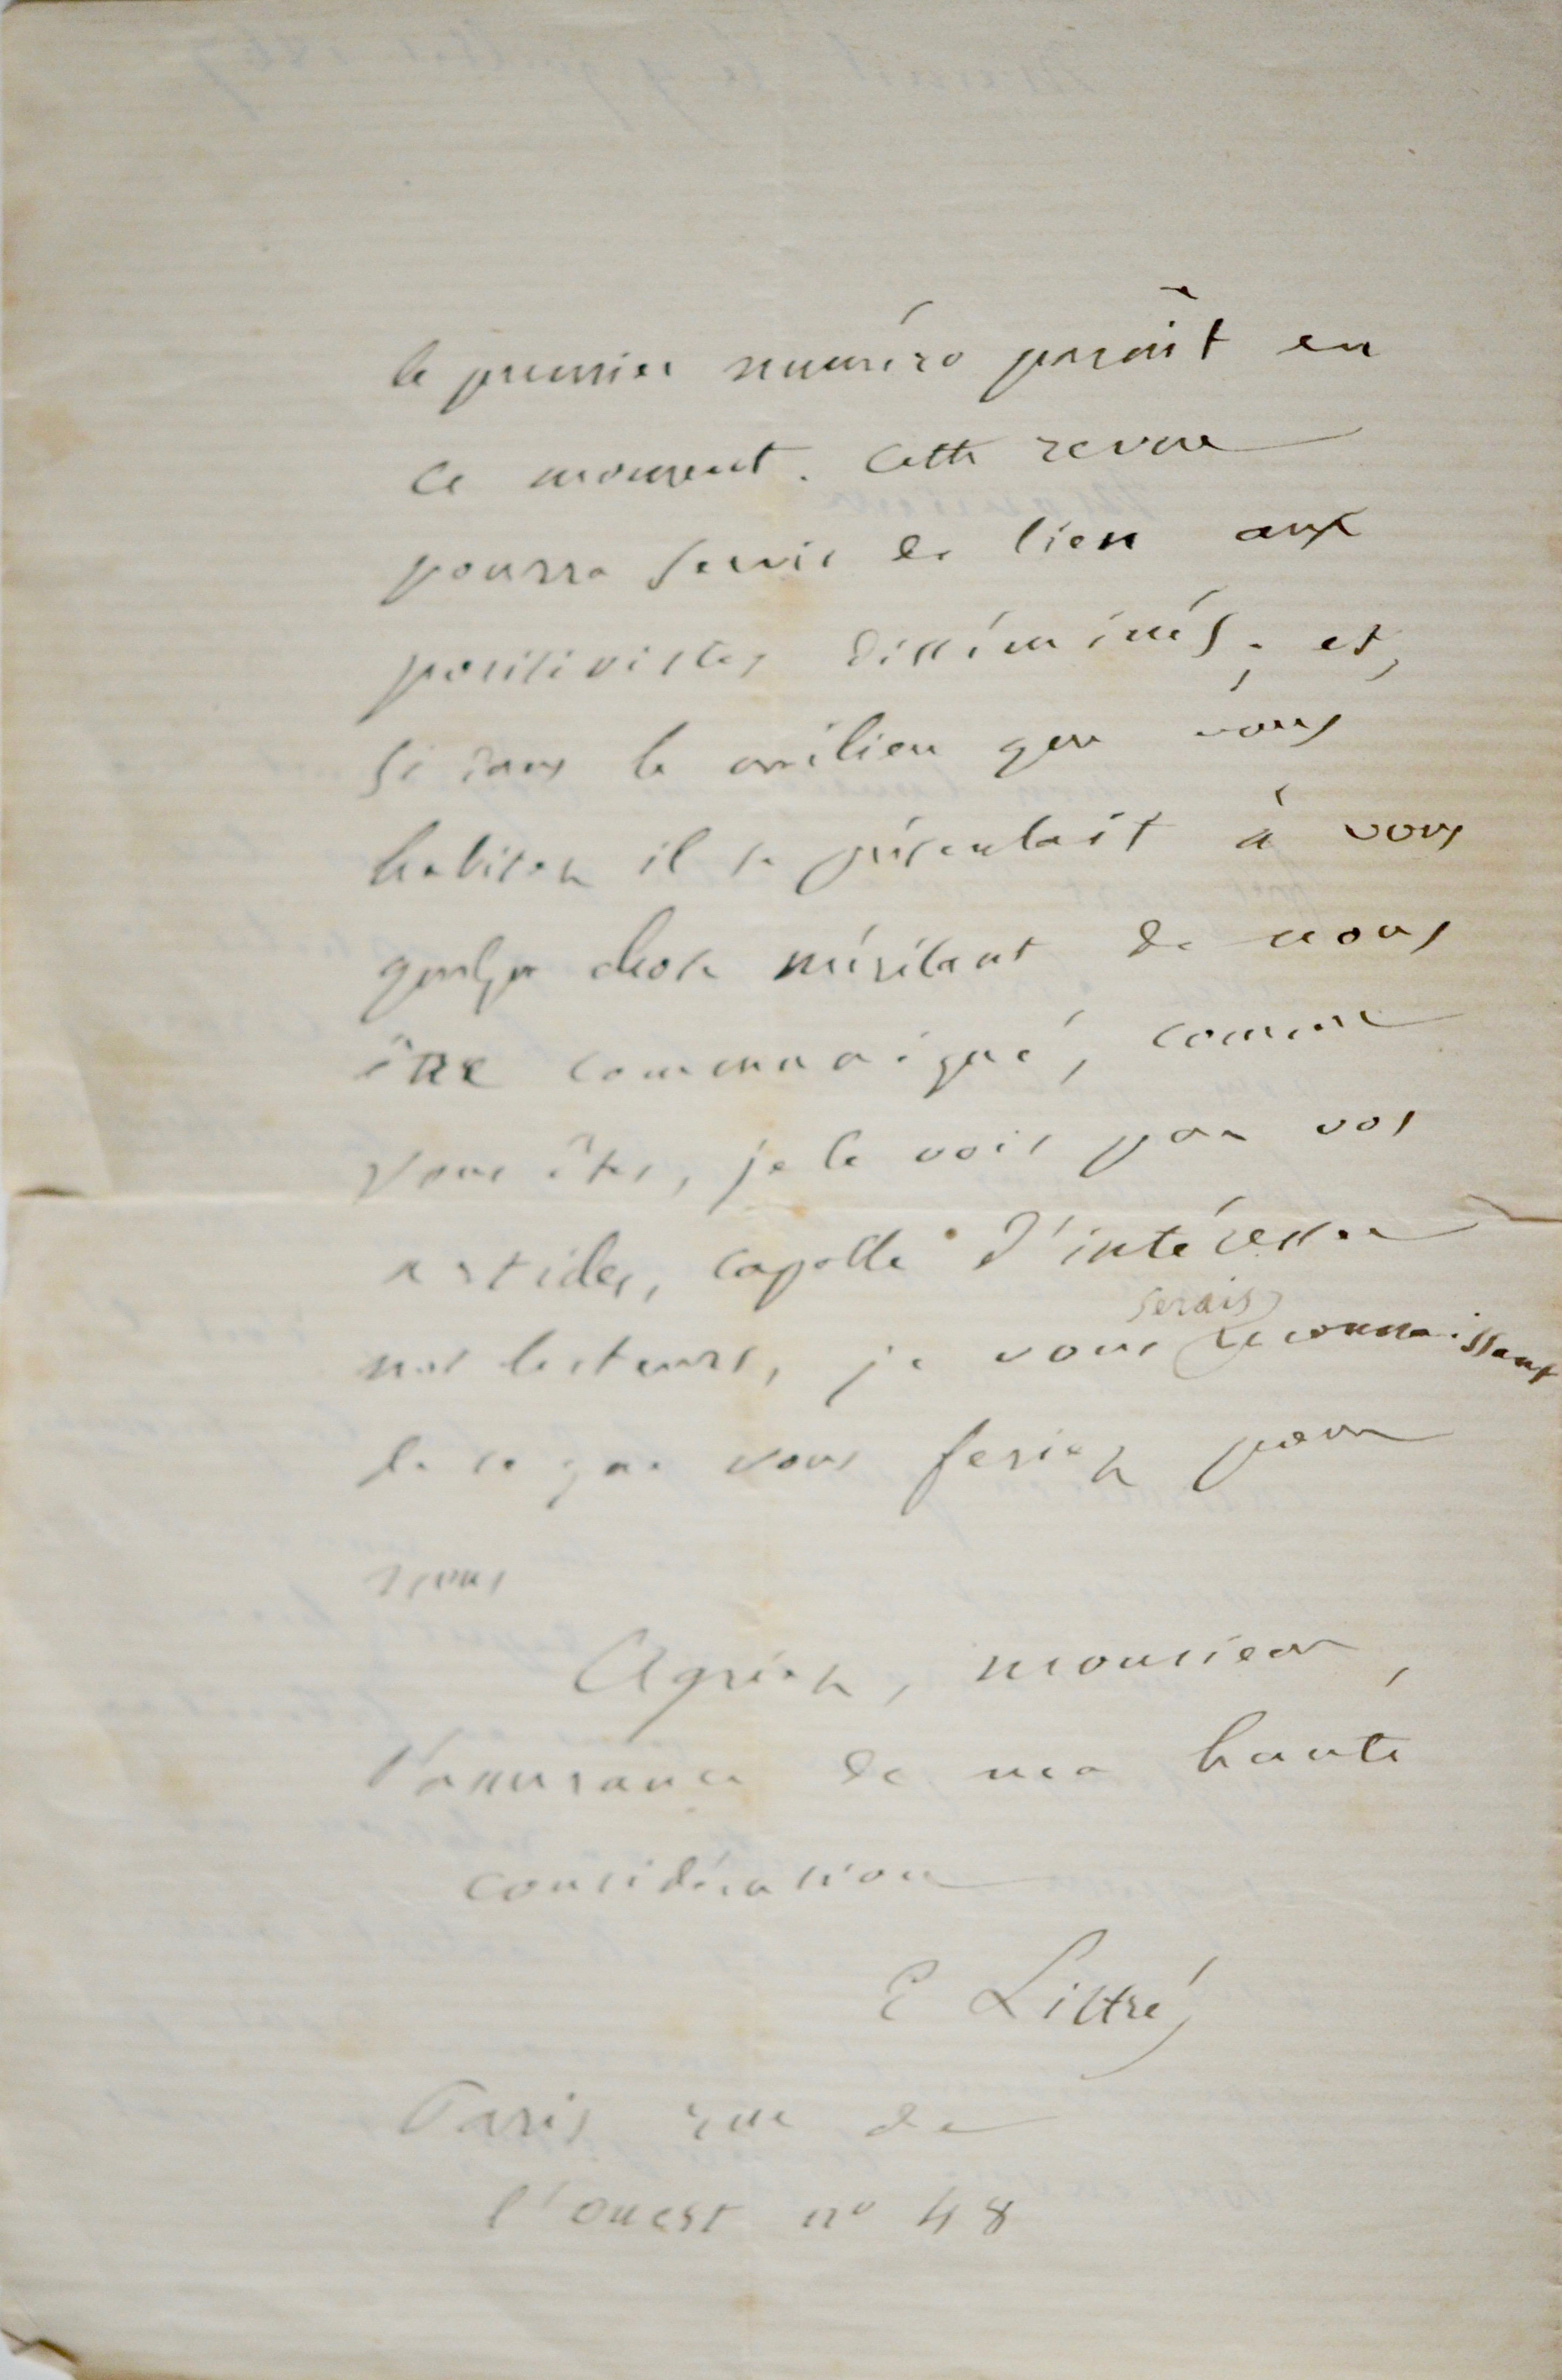 le premier numéro paroît en
ce moment. Cette revue
pourra servir de lien aux
positivistes disséminés ; et,
si dans le milieu que vous
habitez il se présentait à vous
quelque chose méritant de nous
être communiqué, comme
vous êtes, je le vois par vos
articles, capable d'intéresser
nos lecteurs, je vous serais reconnaissant
de ce que vous feriez pour
nous
Agréez, monsieur,
l'assurance de ma haute
considération
E Littré
Paris rue de
l'ouest n° 48